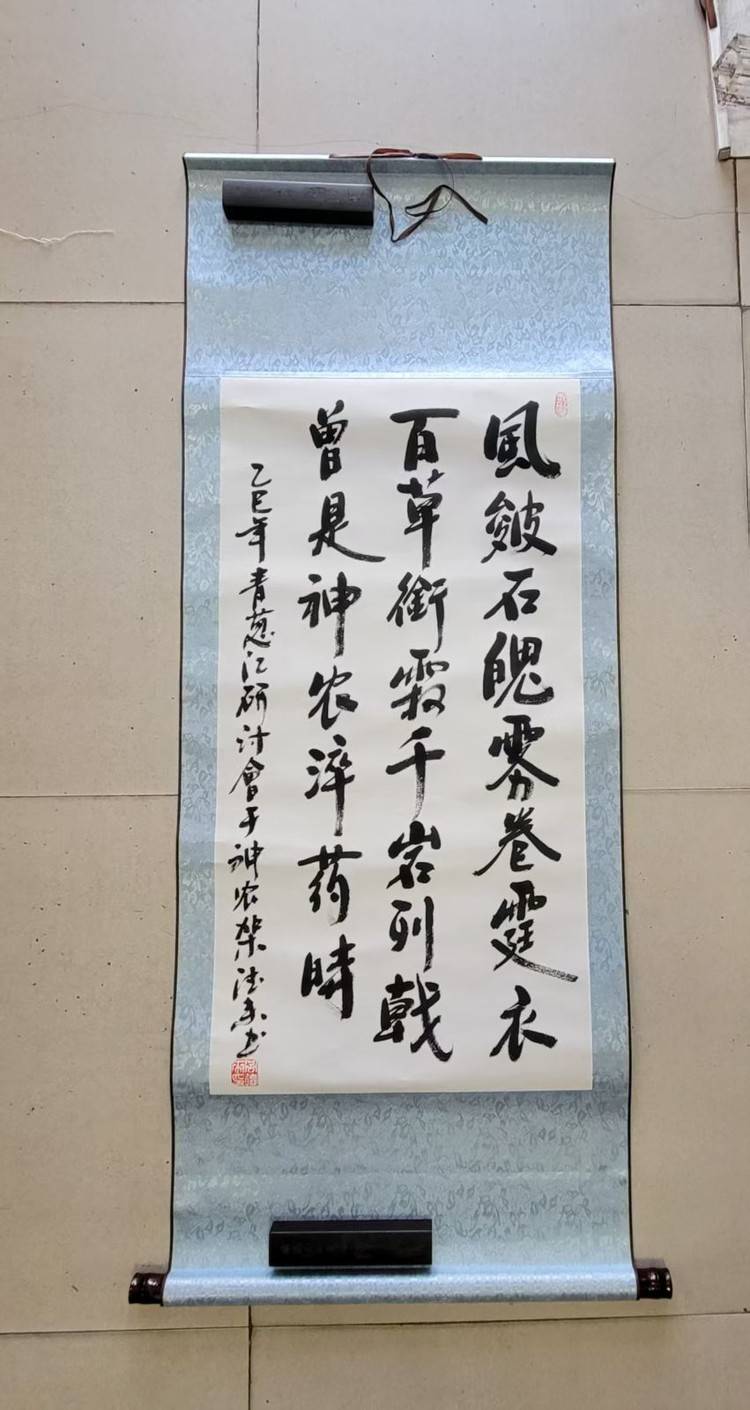 風皴石魄雾卷霆衣
百草銜霜千岩列戟
曾是神农淬药時
乙巳年青江研讨會于神农架书